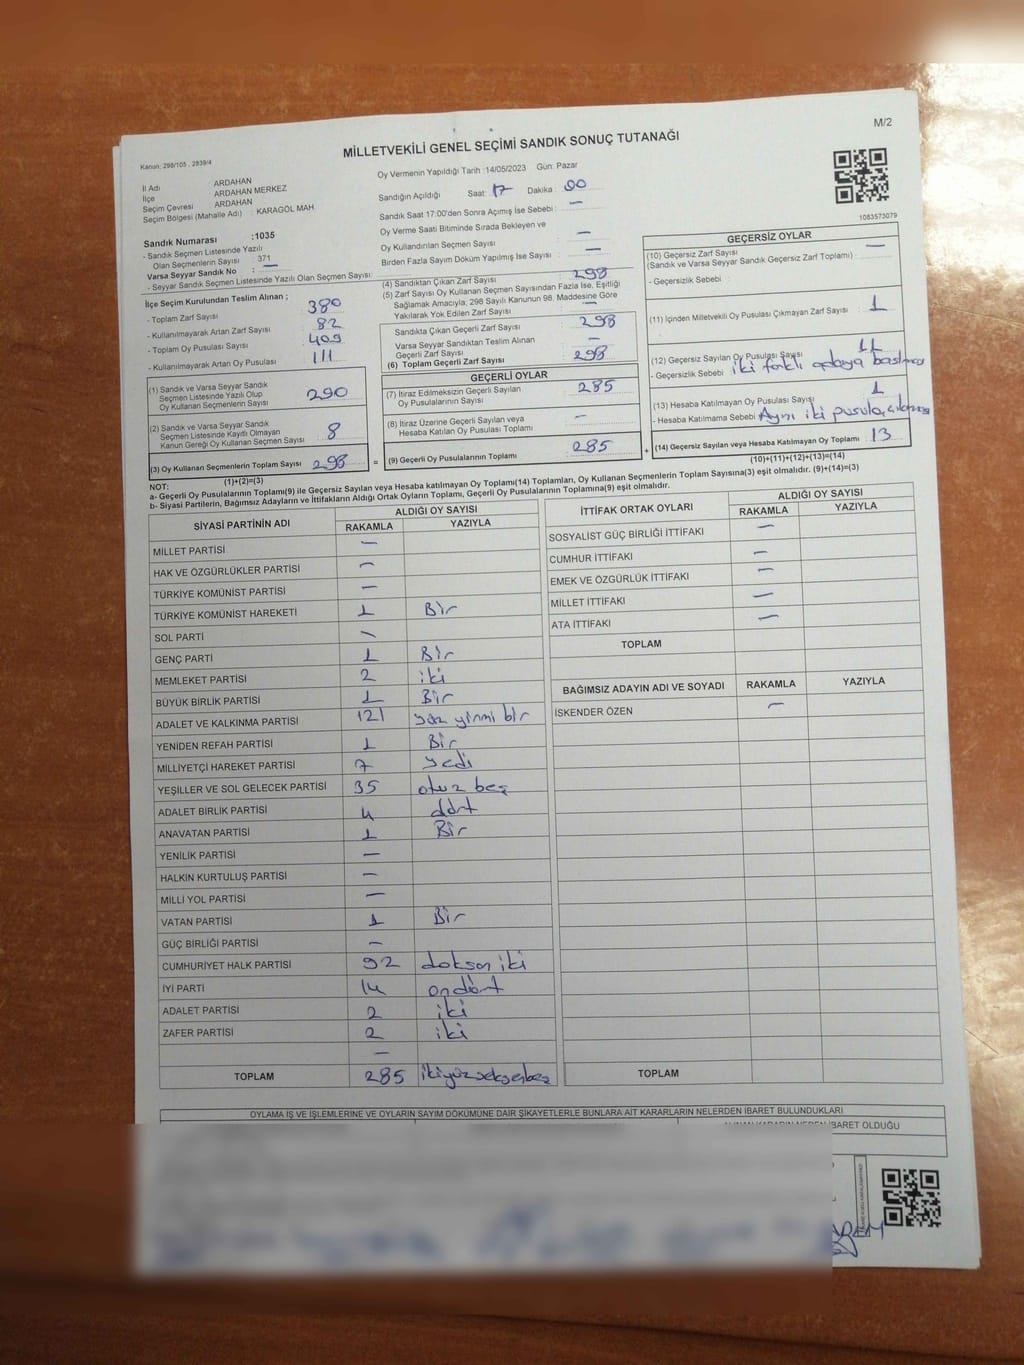 M/2
Kanun: 298/105 , 2839/4
MİLLETVEKİLİ GENEL SEÇİMİ SANDIK SONUÇ TUTANAĞI
İl Adı ARDAHAN
İlçe ARDAHAN MERKEZ
Seçim Çevresi ARDAHAN
Seçim Bölgesi (Mahalle Adı) : KARAGÖL MAH.
Oy Vermenin Yapıldığı Tarih :14/05/2023 Gün: Pazar
Sandığın Açıldığı Saat: 17 Dakika : 00
Sandık Saat 17:00'den Sonra Açımış İse Sebebi : —
Oy Verme Saati Bitiminde Sırada Bekleyen ve
Oy Kullandırılan Seçmen Sayısı —
Birden Fazla Sayım Döküm Yapılmış İse Sayısı : —
1083573079
Sandık Numarası :1035
- Sandık Seçmen Listesinde Yazılı
Olan Seçmenlerin Sayısı : 371
Varsa Seyyar Sandık No : —
- Seyyar Sandık Seçmen Listesinde Yazılı Olan Seçmen Sayısı:
İlçe Seçim Kurulundan Teslim Alınan ;
- Toplam Zarf Sayısı : 380
- Kullanılmayarak Artan Zarf Sayısı : 82
- Toplam Oy Pusulası Sayısı : 409
- Kullanılmayarak Artan Oy Pusulası : 111
(1) Sandık ve Varsa Seyyar Sandık
Seçmen Listesinde Yazılı Olup
Oy Kullanan Seçmenlerin Sayısı : 290
(2) Sandık ve Varsa Seyyar Sandık
Seçmen Listesinde Kayıtlı Olmayan
Kanun Gereği Oy Kullanan Seçmen Sayısı : 8
(3) Oy Kullanan Seçmenlerin Toplam Sayısı : 298
(1)+(2)=(3)
(4) Sandıktan Çıkan Zarf Sayısı : 298
(5) Zarf Sayısı Oy Kullanan Seçmen Sayısından Fazla İse, Eşitliği
Sağlamak Amacıyla; 298 Sayılı Kanunun 98. Maddesine Göre
Yakılarak Yok Edilen Zarf Sayısı : —
Sandıkta Çıkan Geçerli Zarf Sayısı : 298
Varsa Seyyar Sandıktan Teslim Alınan
Geçerli Zarf Sayısı : —
(6) Toplam Geçerli Zarf Sayısı : 298
GEÇERLİ OYLAR
(7) İtiraz Edilmeksizin Geçerli Sayılan
Oy Pusulalarının Sayısı : 285
(8) İtiraz Üzerine Geçerli Sayılan veya
Hesaba Katılan Oy Pusulası Toplamı : —
= (9) Geçerli Oy Pusulalarının Toplamı : 285
GEÇERSİZ OYLAR
(10) Geçersiz Zarf Sayısı
(Sandık ve Varsa Seyyar Sandık Geçersiz Zarf Toplamı) : —
- Geçersizlik Sebebi :
(11) İçinden Milletvekili Oy Pusulası Çıkmayan Zarf Sayısı : 1
(12) Geçersiz Sayılan Oy Pusulası Sayısı : 11
- Geçersizlik Sebebi : iki farklı adaya basılması
(13) Hesaba Katılmayan Oy Pusulası Sayısı : 1
- Hesaba Katılmama Sebebi : Aynı iki pusula
+ (14) Geçersiz Sayılan veya Hesaba Katılmayan Oy Toplamı : 13
(10)+(11)+(12)+(13)=(14)
NOT:
a- Geçerli Oy Pusulalarının Toplamı(9) ile Geçersiz Sayılan veya Hesaba katılmayan Oy Toplamı(14) Toplamları, Oy Kullanan Seçmenlerin Toplam Sayısına(3) eşit olmalıdır. (9)+(14)=(3)
b- Siyasi Partilerin, Bağımsız Adayların ve İttifakların Aldığı Ortak Oyların Toplamı, Geçerli Oy Pusulalarının Toplamına(9) eşit olmalıdır.
SİYASİ PARTİNİN ADI ALDIĞI OY SAYISI
RAKAMLA YAZIYLA
MİLLET PARTİSİ —
HAK VE ÖZGÜRLÜKLER PARTİSİ —
TÜRKİYE KOMÜNİST PARTİSİ —
TÜRKİYE KOMÜNİST HAREKETİ 1 Bir
SOL PARTİ —
GENÇ PARTİ 1 Bir
MEMLEKET PARTİSİ 2 iki
BÜYÜK BİRLİK PARTİSİ 1 Bir
ADALET VE KALKINMA PARTİSİ 121 yüz yirmi bir
YENİDEN REFAH PARTİSİ 1 Bir
MİLLİYETÇİ HAREKET PARTİSİ 7 yedi
YEŞİLLER VE SOL GELECEK PARTİSİ 35 otuz beş
ADALET BİRLİK PARTİSİ 4 dört
ANAVATAN PARTİSİ 1 Bir
YENİLİK PARTİSİ —
HALKIN KURTULUŞ PARTİSİ —
MİLLİ YOL PARTİSİ —
VATAN PARTİSİ 1 Bir
GÜÇ BİRLİĞİ PARTİSİ —
CUMHURİYET HALK PARTİSİ 92 doksan iki
İYİ PARTİ 14 on dört
ADALET PARTİSİ 2 iki
ZAFER PARTİSİ 2 iki
—
TOPLAM 285 ikiyüzseksenbeş
İTTİFAK ORTAK OYLARI ALDIĞI OY SAYISI
RAKAMLA YAZIYLA
SOSYALİST GÜÇ BİRLİĞİ İTTİFAKI —
CUMHUR İTTİFAKI —
EMEK VE ÖZGÜRLÜK İTTİFAKI —
MİLLET İTTİFAKI —
ATA İTTİFAKI —
TOPLAM
BAĞIMSIZ ADAYIN ADI VE SOYADI RAKAMLA YAZIYLA
İSKENDER ÖZEN —
TOPLAM
OYLAMA İŞ VE İŞLEMLERİNE VE OYLARIN SAYIM DÖKÜMÜNE DAİR ŞİKAYETLERLE BUNLARA AİT KARARLARIN NELERDEN İBARET BULUNDUKLARI
İBARET OLDUĞU